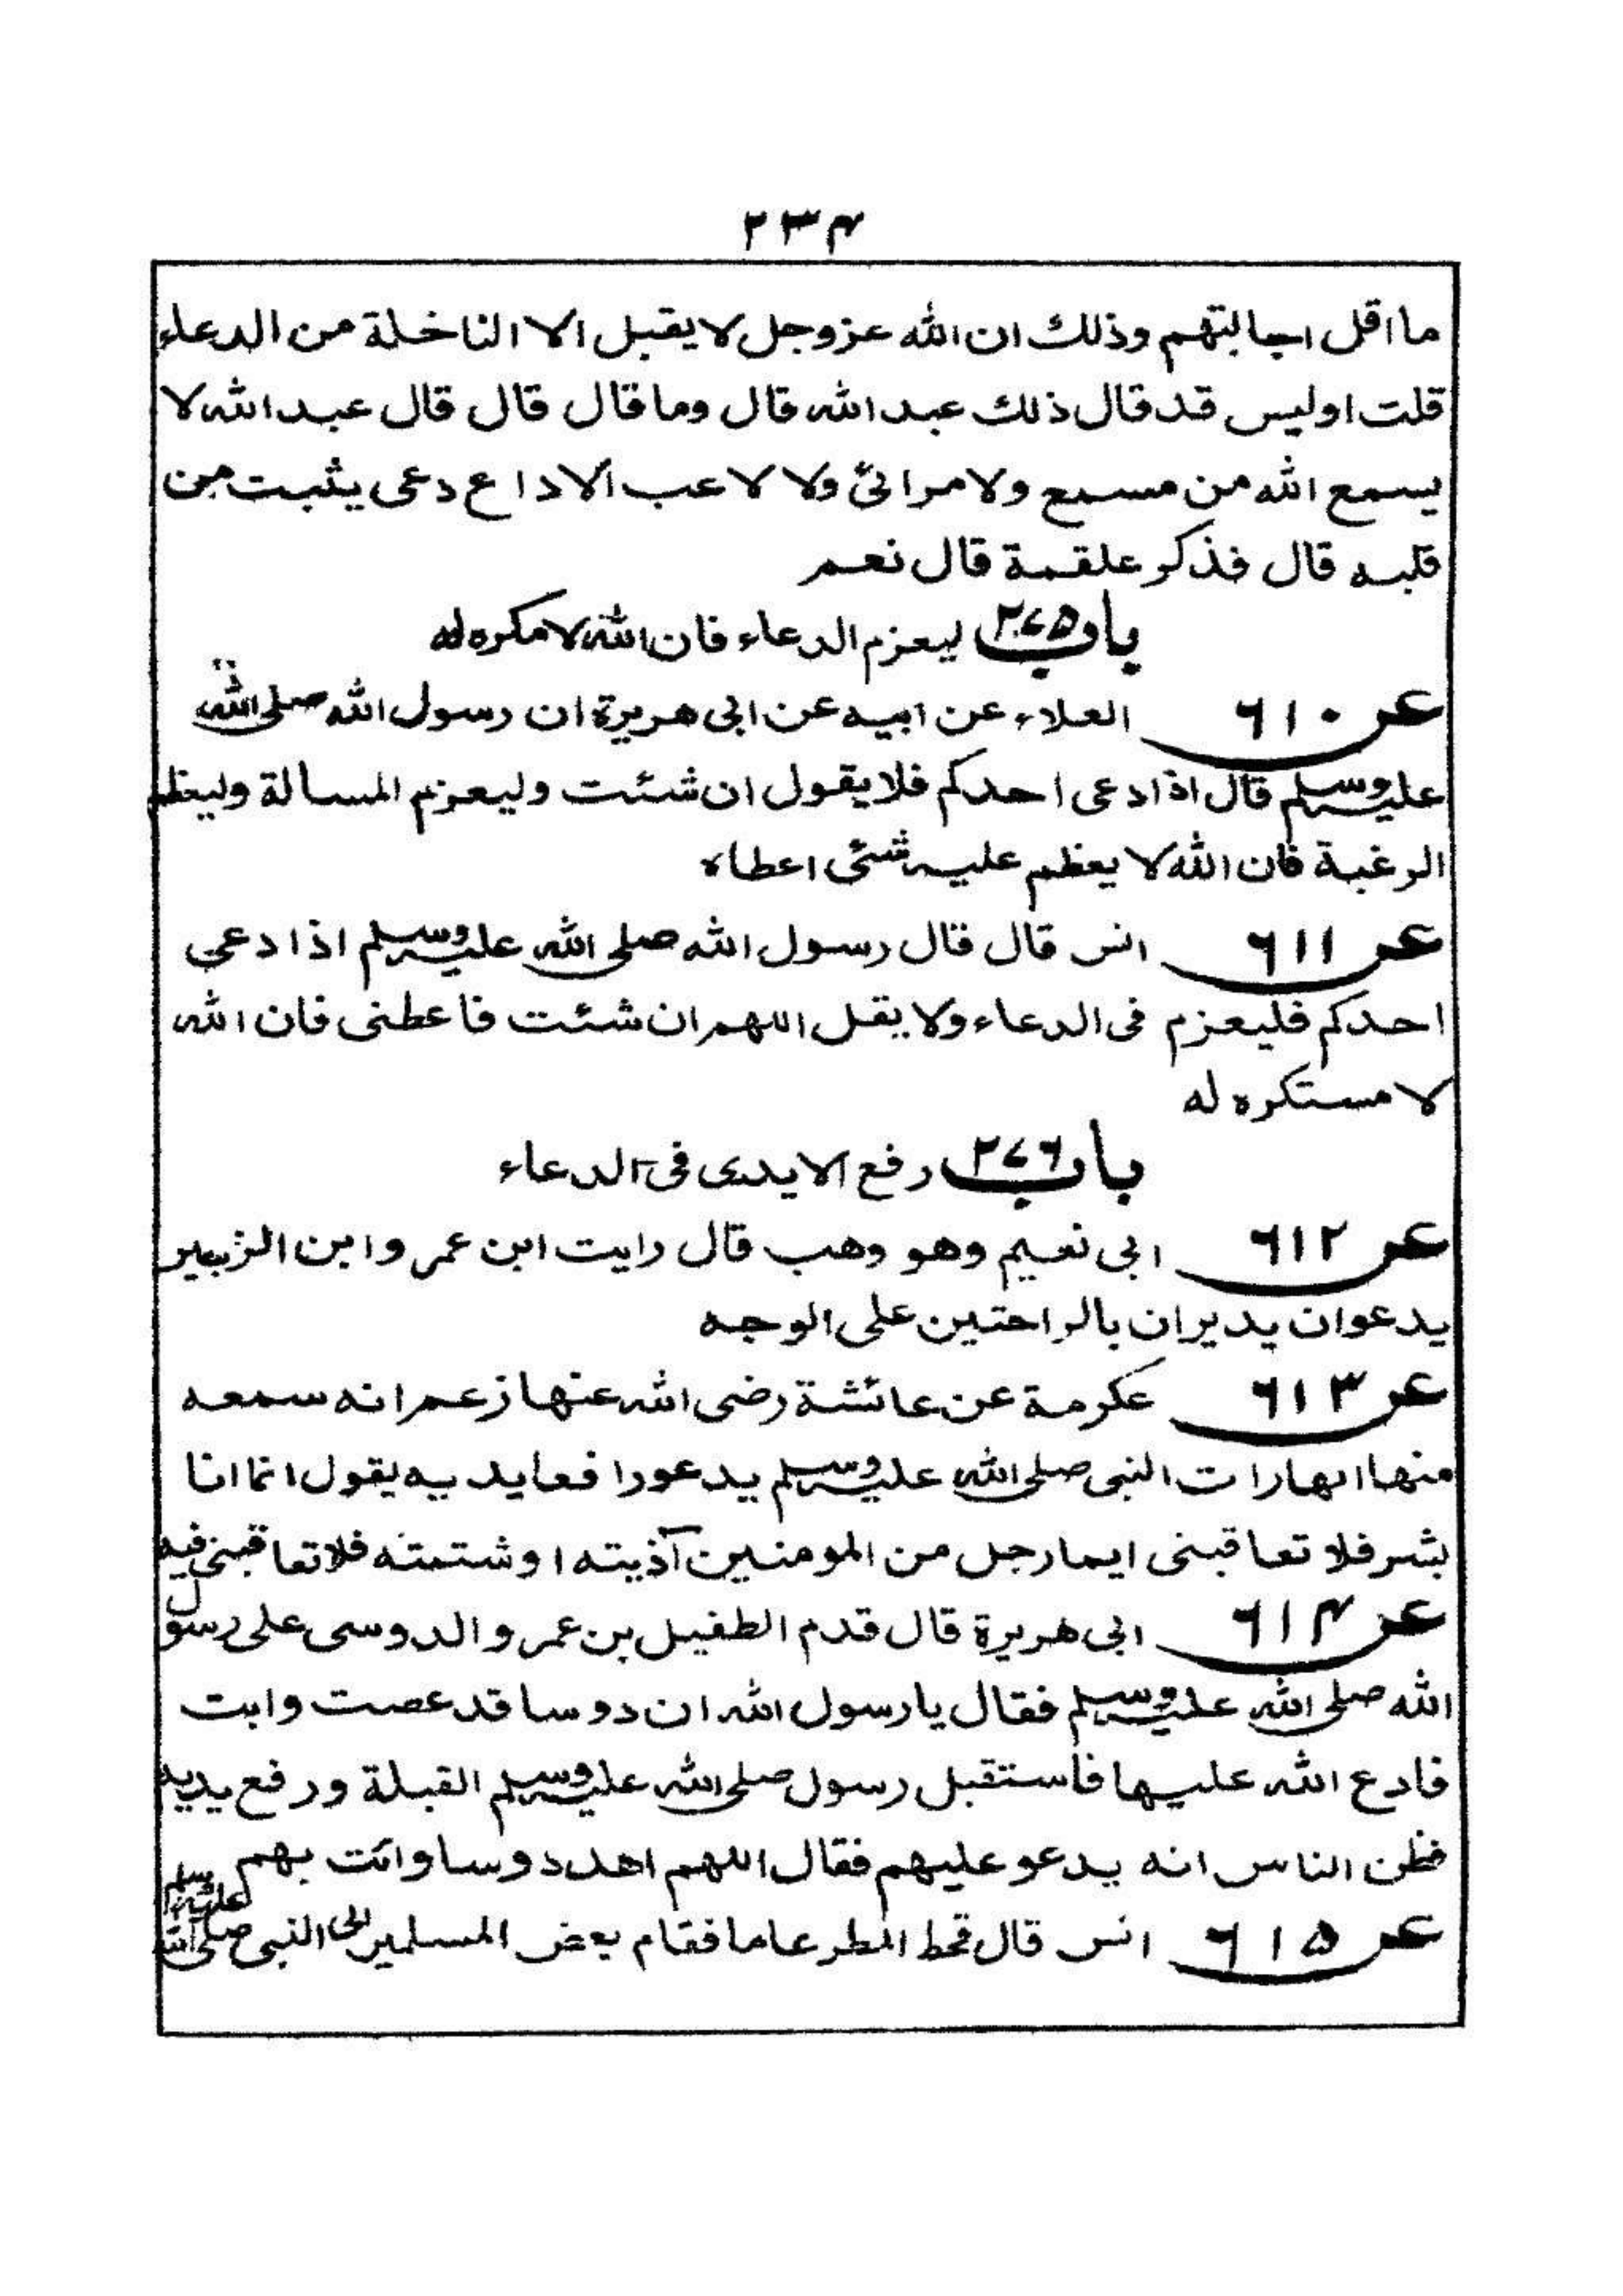 ۲۳۴
ما اقل اجابتهم وذلك ان الله عزوجل لا يقبل الا الناخلة من الدعاء
قلت اوليس قد قال ذلك عبد الله قال وما قال قال قال عبد الله لا
يسمع الله من مسمع ولا مرائى ولا لاعب الا داع دعى يثبت من
قلبه قال فذكر علقمة قال نعم
باب ۲۷۵ ليعزم الدعاء فان الله لا مكره له
عن ۶۱۰ العلاء عن ابيه عن ابى هريرة ان رسول الله صلى الله
عليه وسلم قال اذا دعى احدكم فلا يقول ان شئت وليعزم المسالة وليعظم
الرغبة فان الله لا يعظم عليه شئى اعطاه
عن ۶۱۱ انس قال قال رسول الله صلى الله عليه وسلم اذا دعى
احدكم فليعزم فى الدعاء ولا يقل اللهم ان شئت فاعطنى فان الله
لا مستكره له
باب ۲۷۶ رفع الايدى فى الدعاء
عن ۶۱۲ ابى نعيم وهو وهب قال رايت ابن عمر وابن الزبير
يدعوان يديران بالراحتين على الوجه
عن ۶۱۳ عكرمة عن عائشة رضى الله عنها زعم انه سمعه
منها انها رات النبى صلى الله عليه وسلم يدعورا فعا يديه يقول انما انا
بشر فلا تعاقبنى ايما رجل من المومنين آذيته او شتمته فلا تعاقبنى فيه
عن ۶۱۴ ابى هريرة قال قدم الطفيل بن عمر و الدوسى على رسول
الله صلى الله عليه وسلم فقال يا رسول الله ان دوسا قد عصت وابت
فادع الله عليها فاستقبل رسول صلى الله عليه وسلم القبلة ورفع يديه
فظن الناس انه يدعو عليهم فقال اللهم اهد دوسا وائت بهم
عن ۶۱۵ انس قال قحط المطر عاما فقام بعض المسلمين الى النبى صلى الله عليه وسلم